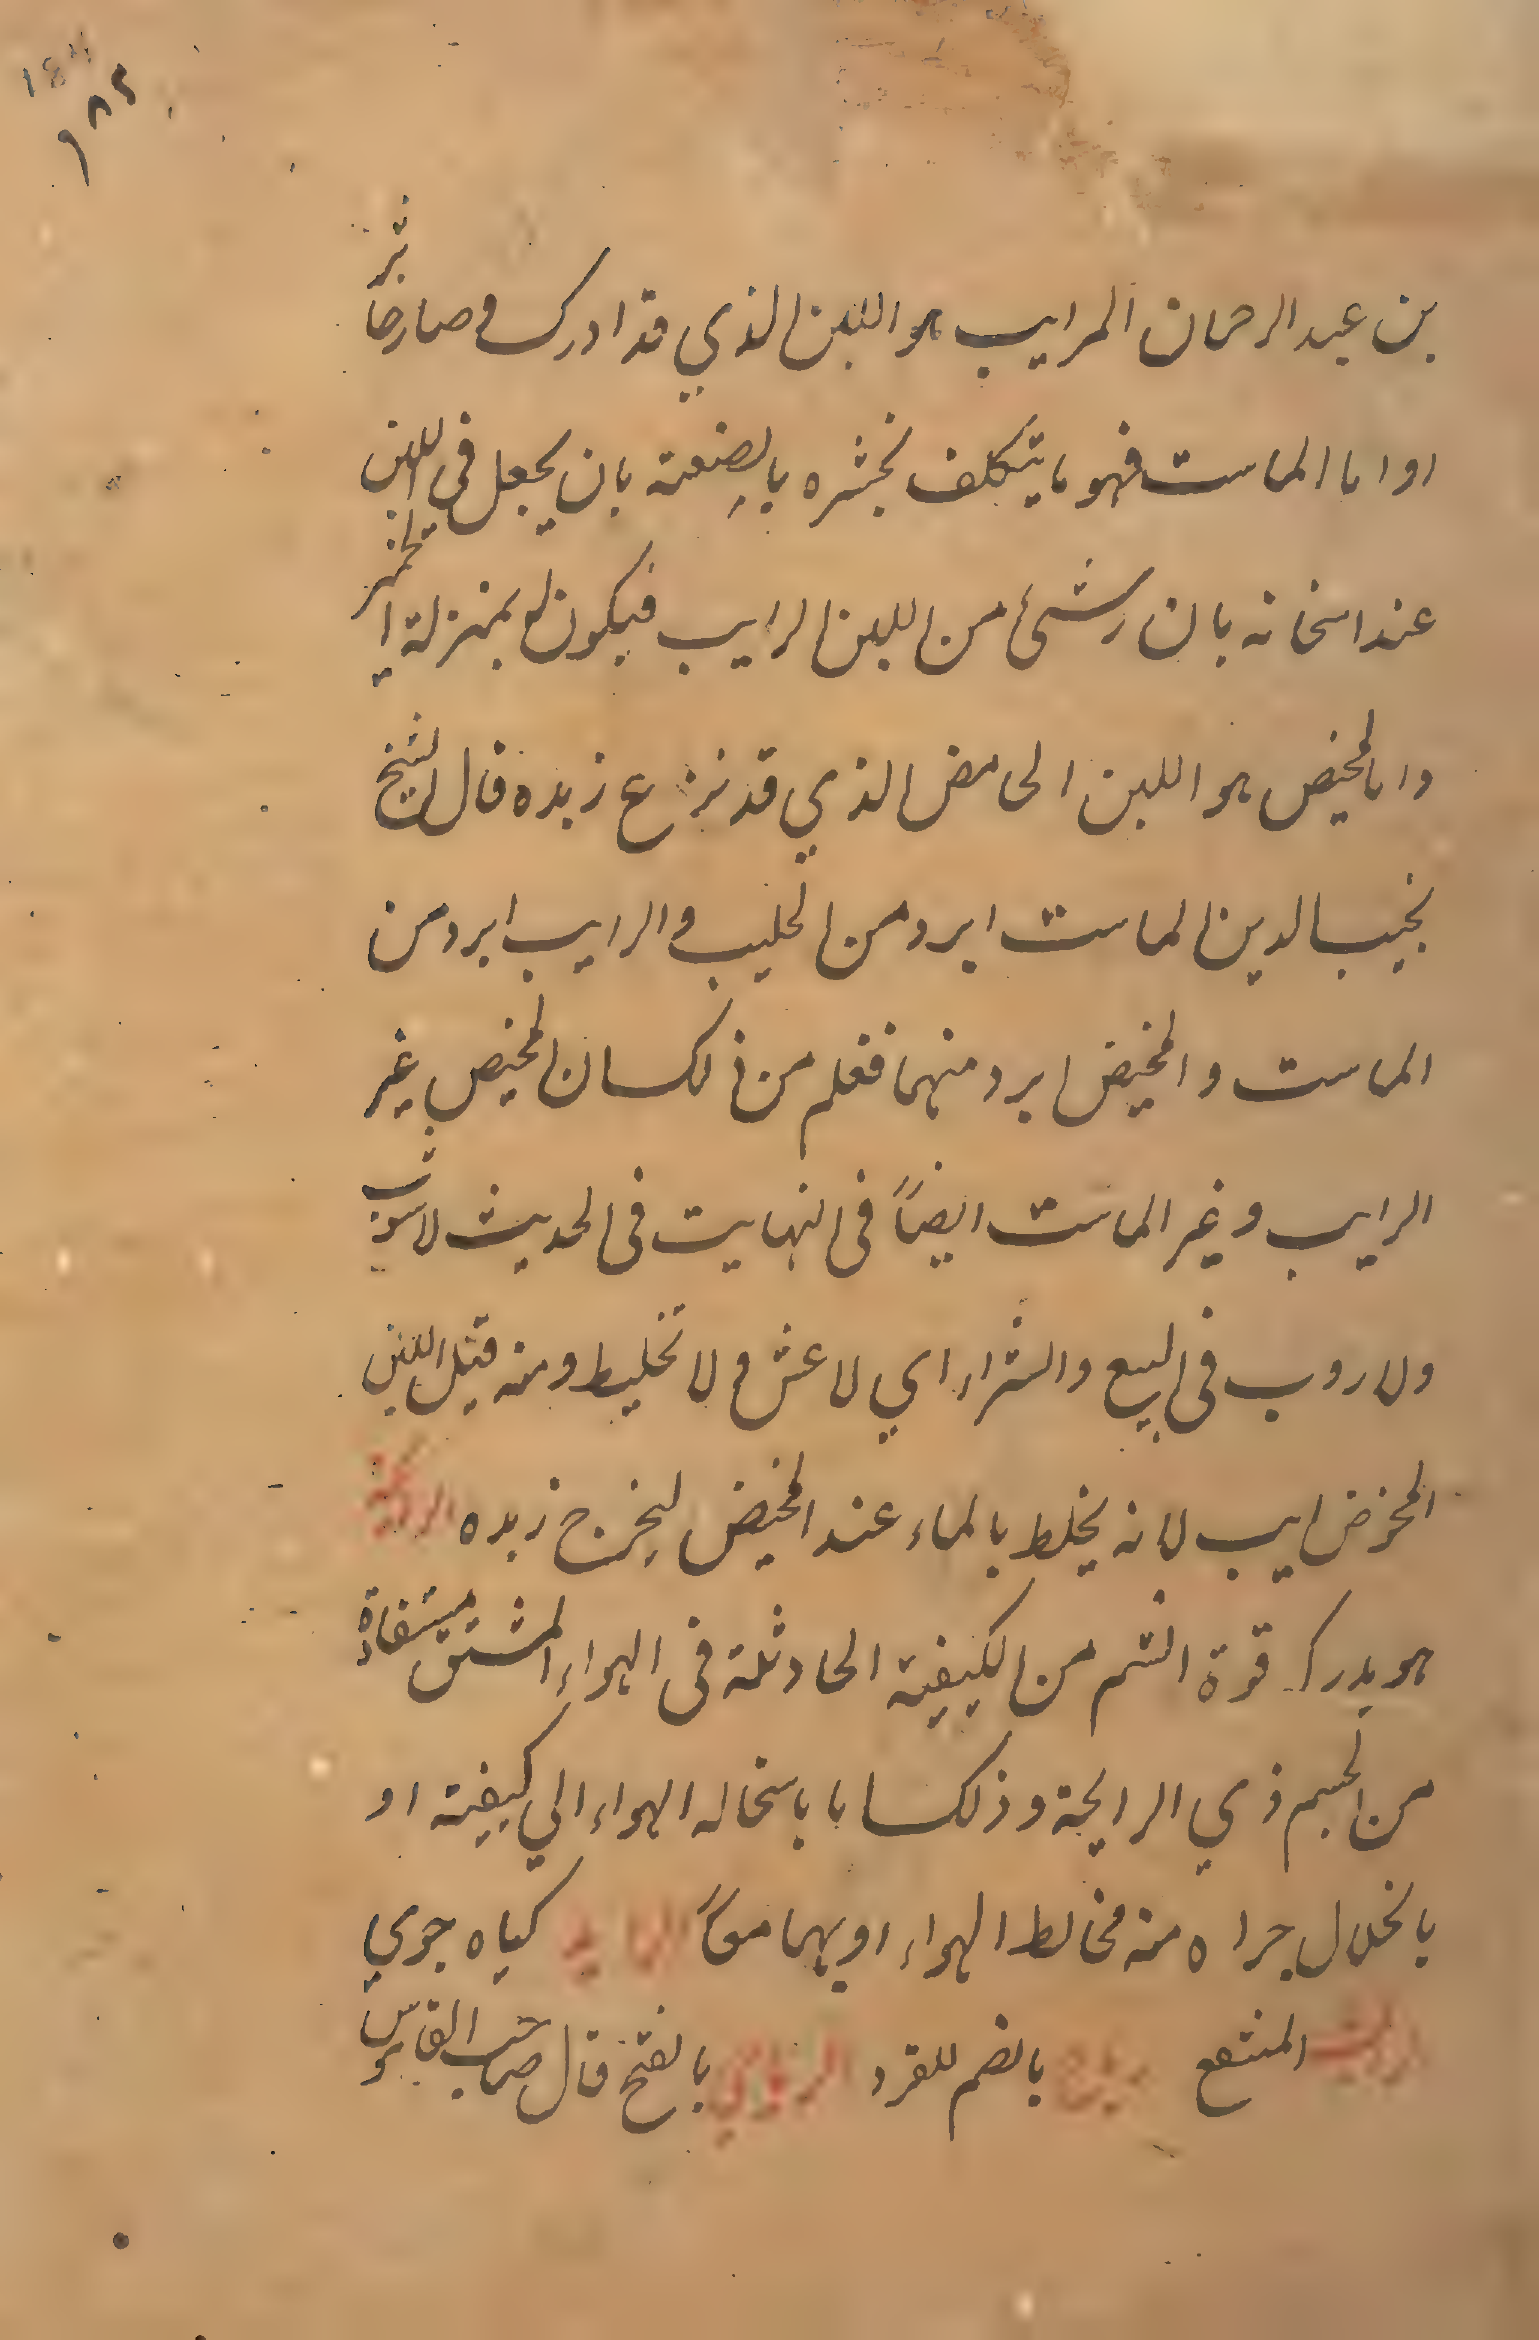 ١٨٤
١٨٢
بن عبد الرحمان المرايب هو اللبن الذي قد ادرك و صار خاثر
او اما الماست فهو ما يتكلف بخثره بالصنعة بان يجعل فى اللبن
عند اسخانه بان رشئ من اللبن الرايب فيكون له بمنزلة الخمير
واما المخيض هو اللبن الحامض الذي قد نزع زبده قال الشيخ
نجيب الدين الماست ابرد من الحليب والرايب ابرد من
الماست والمخيض ابرد منهما فعلم من ذلك ان المخيص غير
الرايب وغير الماست ايضاً فى النهايت فى الحديث لا شوب
ولا روب فى البيع والشراء اي لا عش و لا تخليط ومنه قيل اللبن
المخرض ايب لانه يخلط بالماء عند المخيض ليخرج زبده الرائحة
هو يدرك قوة الشم من الكيفية الحادثة فى الهواء المشتق مستفادة
من الجسم ذي الرايحة و ذلك اما باستحاله الهواء الي كيفية او
بانحلال جراه منه مخالط الهواء او بهما معاً كياه جوي
المنتقع بالضم للقرد بالفتح قال صاحب القاموس